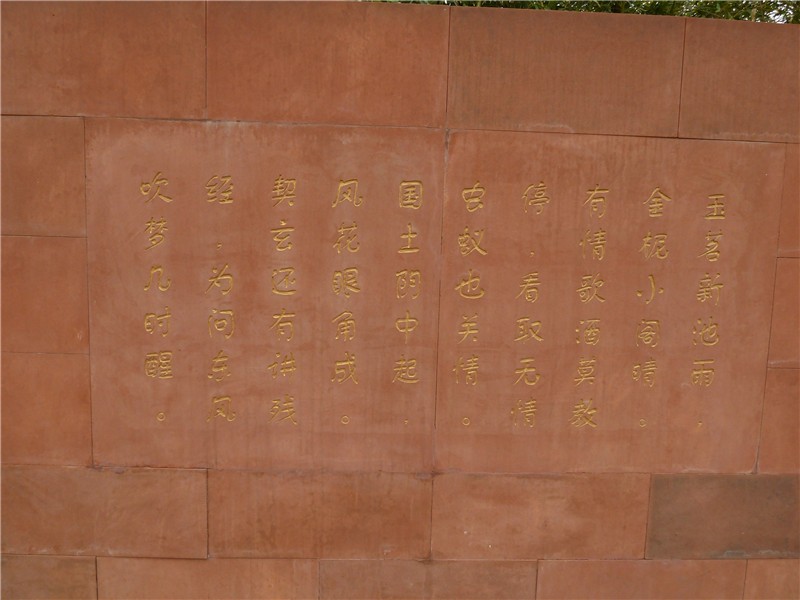 玉茗新池雨，
金柅小阁晴。
有情歌酒莫教
停，看取无情
虫蚁也关情。
国土阴中起，
风花眼角成。
契玄还有讲残
经，为问东风
吹梦几时醒。